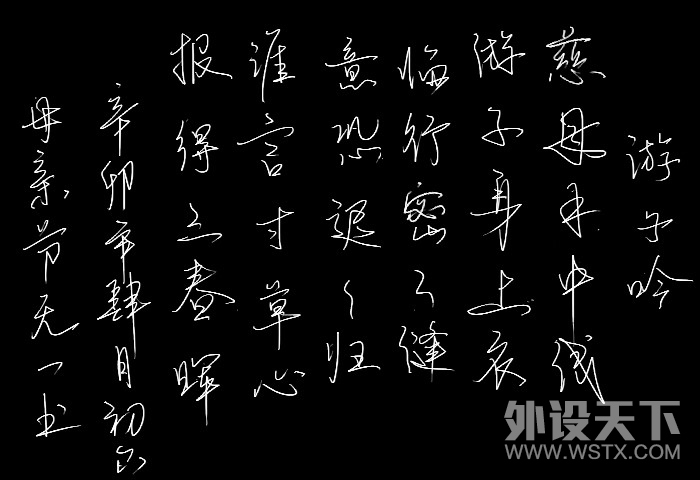 游子吟
慈母手中线
游子身上衣
临行密々缝
意恐迟々归
谁言寸草心
报得三春晖
辛卯年肆月初六
母亲节无一书
外设天下
WWW.WSTX.COM